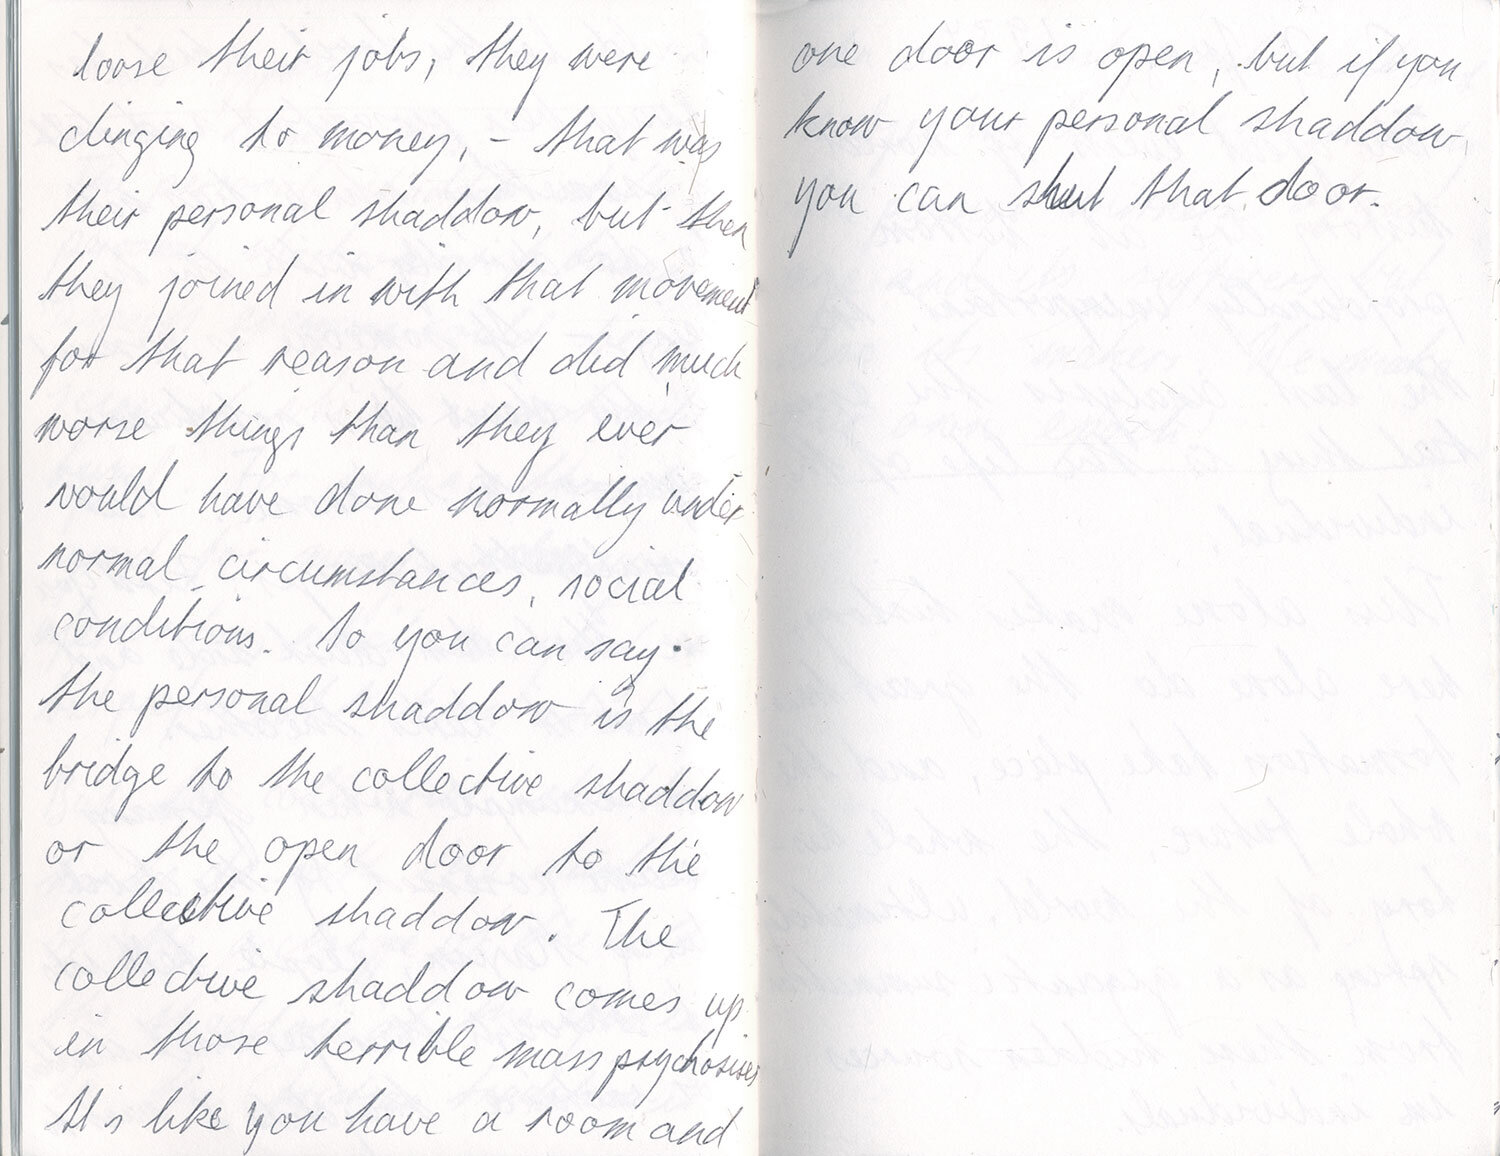 loose their jobs, they were
clinging to money, - that was
their personal shaddow, but then
they joined in with that movement
for that reason and did much
worse things than they ever
would have done normally under
normal circumstances, social
conditions. So you can say.
the personal shaddow is the
bridge to the collective shaddow
or the open door to the
collective shaddow. The
collective shaddow comes up
in those terrible mass psychosises
It's like you have a room and
one door is open, but if you
know your personal shaddow,
you can shut that door.